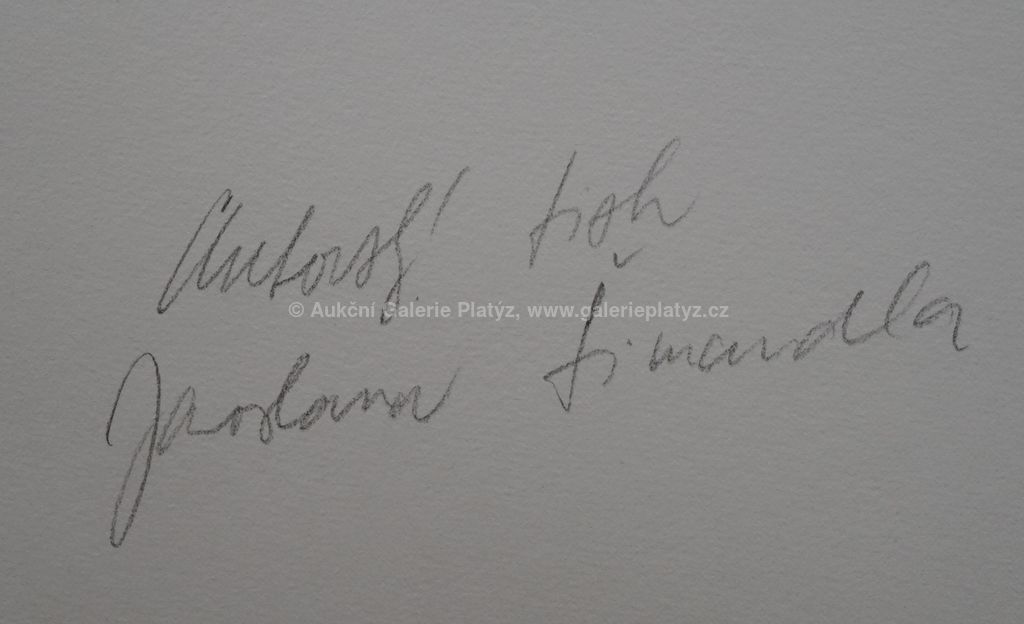 Autorský tisk
© Aukční Galerie Platýz, www.galerieplatyz.cz
Jaroslava Šimandla